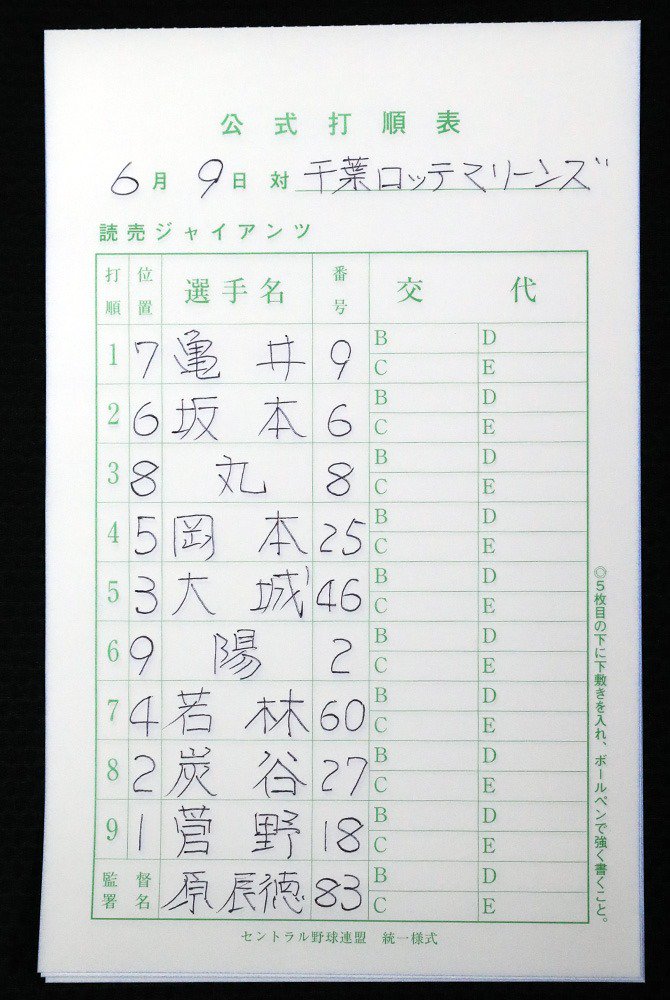 公式打順表
6月9日 対 千葉ロッテマリーンズ
読売ジャイアンツ
打順 位置 選手名 番号 交代
1 7 亀井 9 B D C E
2 6 坂本 6 B D C E
3 8 丸 8 B D C E
4 5 岡本 25 B D C E
5 3 大城 46 B D C E
6 9 陽 2 B D C E
7 4 若林 60 B D C E
8 2 炭谷 27 B D C E
9 1 菅野 18 B D C E
監督署名 原辰徳 83 B D C E
◎5枚目の下に下敷きを入れ、ボールペンで強く書くこと。
セントラル野球連盟 統一様式